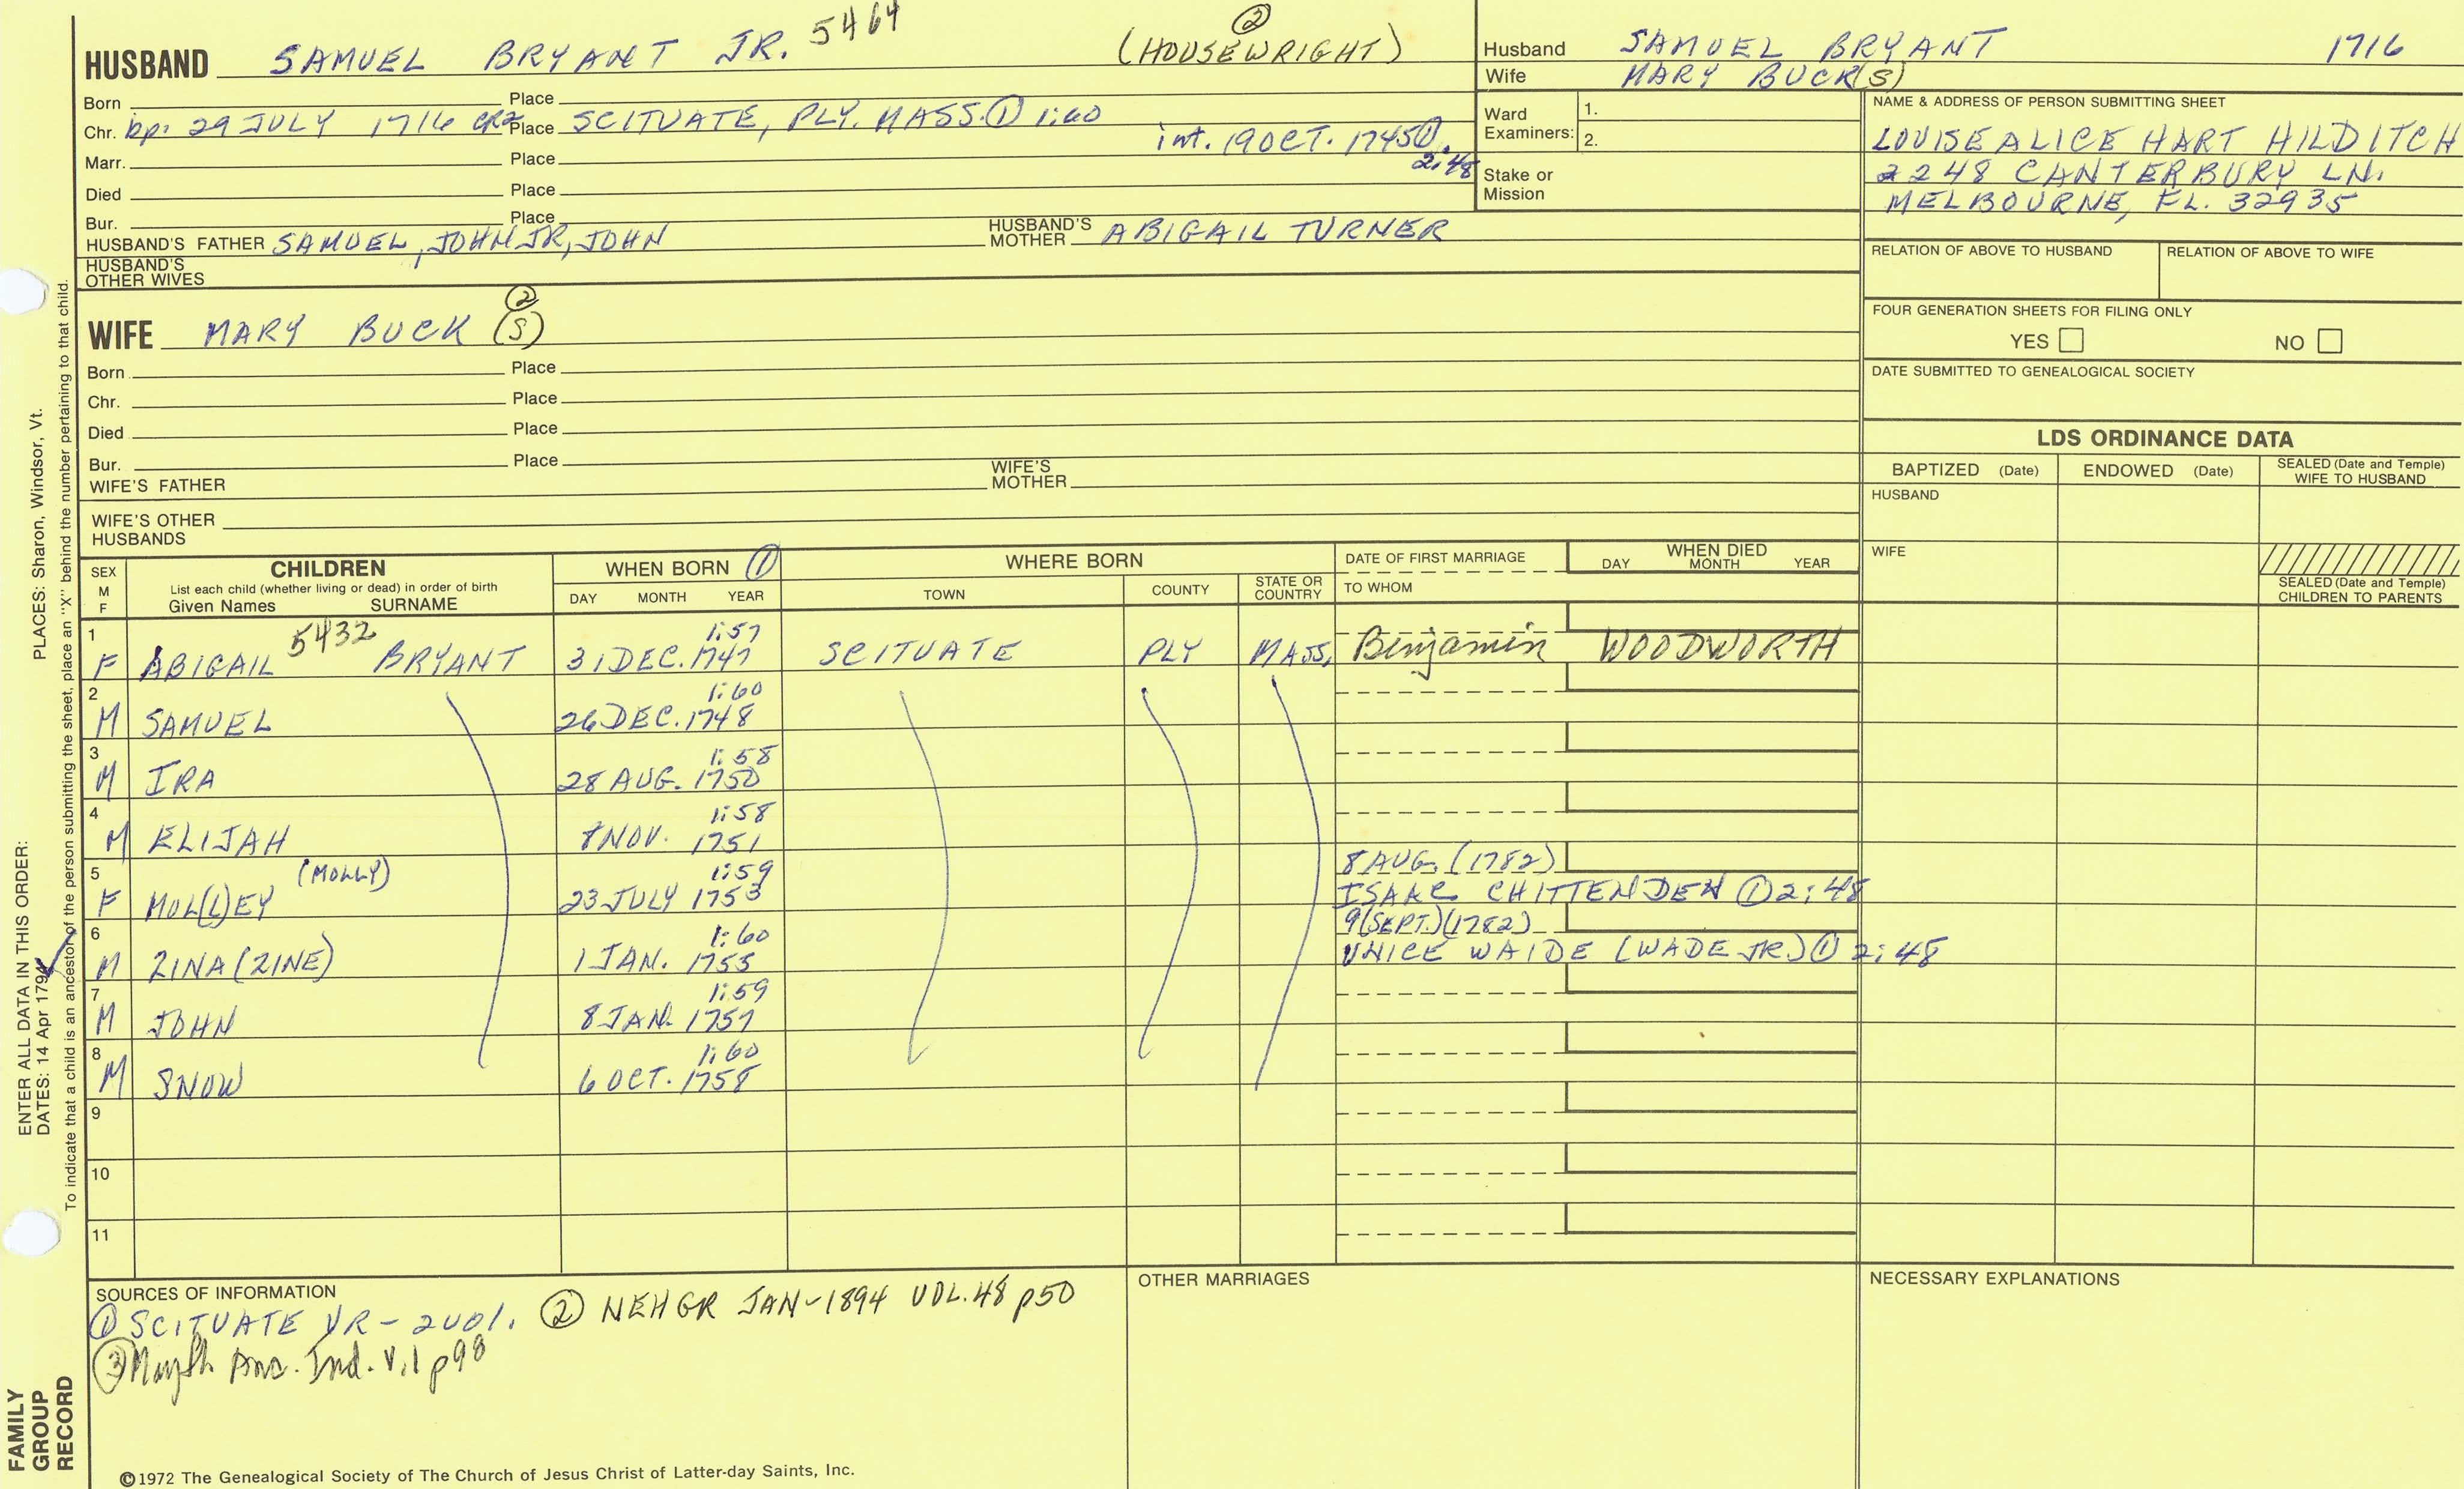 HUSBAND SAMUEL BRYANT JR. 5464 (HOUSEWRIGHT) ②
Born Place
Chr. bp: 29 JULY 1716 CR2 Place SCITUATE, PLY. MASS. ① 1:60
int. 19 OCT. 1745 ① 2:48
Marr. Place
Died Place
Bur. Place
HUSBAND'S FATHER SAMUEL, JOHN JR, JOHN HUSBAND'S MOTHER ABIGAIL TURNER
HUSBAND'S OTHER WIVES
Husband SAMUEL BRYANT 1716
Wife MARY BUCK(S)
Ward Examiners: 1.
2.
Stake or Mission
NAME & ADDRESS OF PERSON SUBMITTING SHEET
LOUISE ALICE HART HILDITCH
2248 CANTERBURY LN.
MELBOURNE, FL. 32935
RELATION OF ABOVE TO HUSBAND RELATION OF ABOVE TO WIFE
FOUR GENERATION SHEETS FOR FILING ONLY
YES NO
DATE SUBMITTED TO GENEALOGICAL SOCIETY
WIFE MARY BUCK (S) ②
Born Place
Chr. Place
Died Place
Bur. Place
WIFE'S FATHER WIFE'S MOTHER
WIFE'S OTHER HUSBANDS
LDS ORDINANCE DATA
BAPTIZED (Date) ENDOWED (Date) SEALED (Date and Temple) WIFE TO HUSBAND
HUSBAND
WIFE
SEALED (Date and Temple) CHILDREN TO PARENTS
SEX M F
CHILDREN
List each child (whether living or dead) in order of birth
Given Names SURNAME
WHEN BORN ①
DAY MONTH YEAR
WHERE BORN
TOWN COUNTY STATE OR COUNTRY
DATE OF FIRST MARRIAGE
TO WHOM
WHEN DIED
DAY MONTH YEAR
1 F ABIGAIL 5432 BRYANT 31 DEC. 1747 1:57 SCITUATE PLY MASS. Benjamin WOODWORTH
2 M SAMUEL 26 DEC. 1748 1:60
3 M IRA 28 AUG. 1750 1:58
4 M ELIJAH 8 NOV. 1751 1:58
5 F MOL(L)EY (MOLLY) 23 JULY 1753 1:59 8 AUG. (1782)
ISAAC CHITTENDEN ① 2:48
6 M ZINA (ZINE) 1 JAN. 1755 1:60 9 (SEPT.) (1782)
UNICE WAIDE (WADE JR.) ① 2:48
7 M JOHN 8 JAN. 1757 1:59
8 M SNOW 6 OCT. 1758 1:60
9
10
11
SOURCES OF INFORMATION
① SCITUATE VR - 2 VOL. ② NEHGR JAN-1894 VOL. 48 p50
③ Anc. Ind. V.1 p98
OTHER MARRIAGES
NECESSARY EXPLANATIONS
©1972 The Genealogical Society of The Church of Jesus Christ of Latter-day Saints, Inc.
ENTER ALL DATA IN THIS ORDER:
DATES: 14 Apr 1794
PLACES: Sharon, Windsor, Vt.
To indicate that a child is an ancestor of the person submitting the sheet, place an "X" behind the number pertaining to that child.
FAMILY
GROUP
RECORD